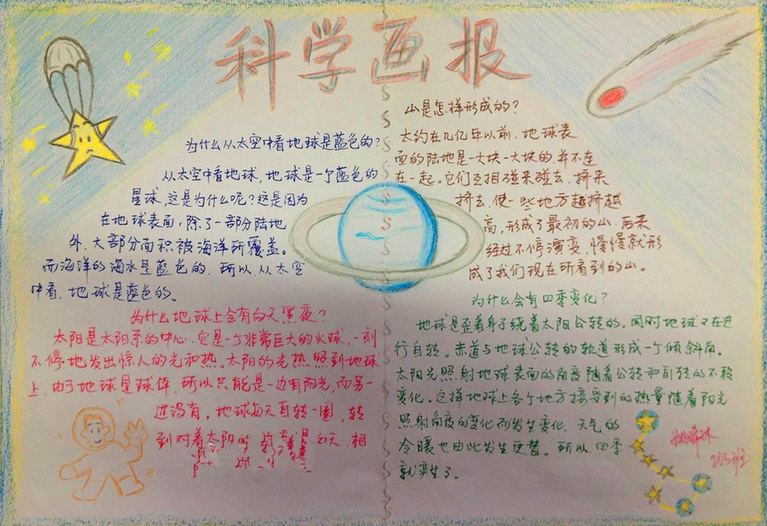 科学画报
为什么从太空中看地球是蓝色的?
从太空中看地球,地球是一个蓝色的
星球,这是为什么呢?这是因为
在地球表面,除了一部分陆地
外,大部分面积被海洋所覆盖。
而海洋的海水是蓝色的,所以,从太空
中看,地球是蓝色的。
为什么地球上会有白天黑夜?
太阳是太阳系的中心,它是一个非常巨大的火球,一刻
不停地发出惊人的光和热。太阳的光热照到地球
上,由于地球是球体,所以只能是一边有阳光,而另一
边没有。地球每天自转一圈,转
到对着太阳的 白天,相
山是怎样形成的?
大约在几亿年以前,地球表
面的陆地是一大块一大块的,并不连
在一起。它们互相碰来碰去,挤来
挤去,使一些地方越挤越
高,形成了最初的山,后来
经过不停演变,慢慢就形
成了我们现在所看到的山。
为什么会有四季变化?
地球是歪着身子绕着太阳公转的,同时地球又在进
行自转。赤道与地球公转的轨道形成一个倾斜角。
太阳光照射地球表面的角度随着公转和自转的不断
变化。这样地球上各个地方接受到的热量随着阳光
照射角度的变化而发生变化,天气的
冷暖也由此发生更替。所以四季
就产生了。
205班